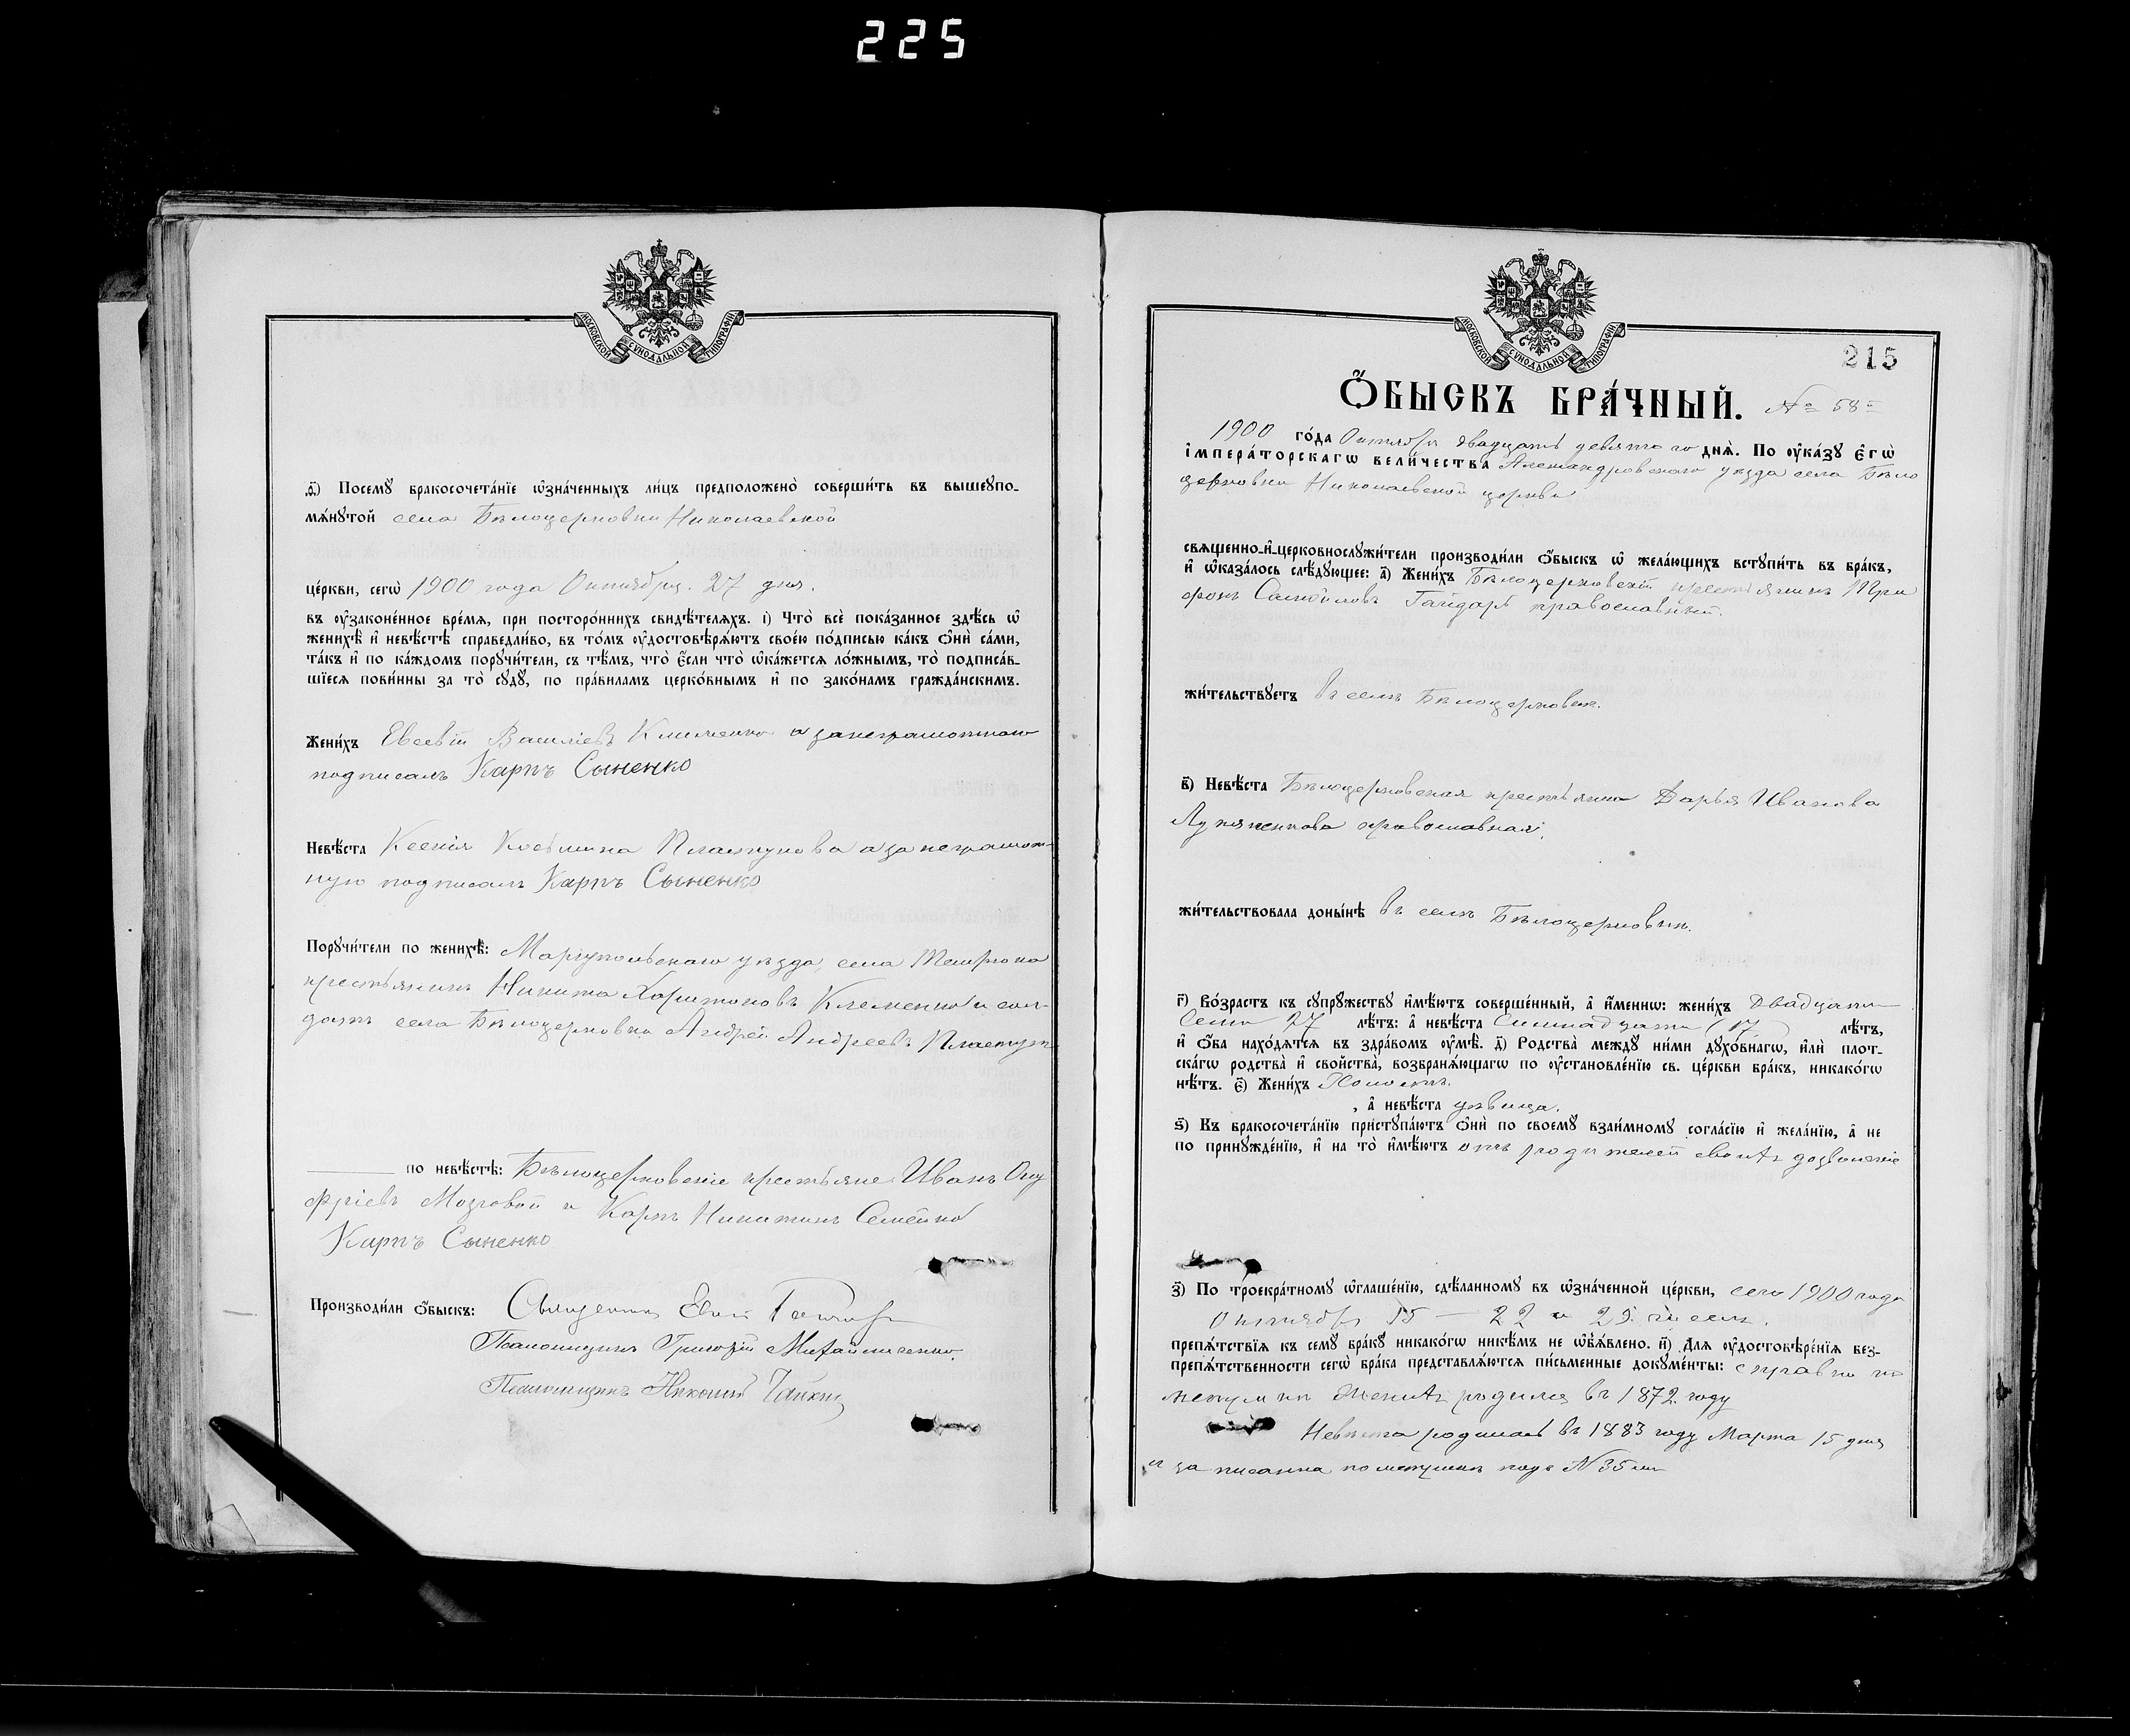 225
МОСКОВСКОЙ СѴНОДАЛЬНОЙ ТИПОГРАФІИ
ѳ҃) Посемꙋ бракосочета́нїе ѡзна́ченныхъ ли́цъ предположено̀ соверши́ть въ вышеꙋпо-
мѧ́нꙋтой села Бѣлоцерковки Николаевской
це́ркви, сегѡ̀ 1900 года Октября. 27 дня.
въ ᲂу҆законе́нное вре́мѧ, при посторо́ннихъ свидѣ́телѧхъ. і҃) Что̀ всѐ пока́занное здѣ́сь ѡ҆
женихѣ̀ и҆ невѣ́стѣ справедли́во, въ то́мъ ᲂу҆достовѣрѧ́ютъ свое́ю по́дписью ка́къ ѻ҆нѝ са́ми,
та́къ и҆ по ка́ждомъ порꙋчи́тели, съ тѣ́мъ, что̀ є҆́сли что̀ ѡ҆ка́жетсѧ ло́жнымъ, то̀ подписа́в-
шїесѧ пови́нны за то̀ сꙋдꙋ̀, по пра́виламъ церко́внымъ и҆ по зако́намъ гражда́нскимъ.
Жени́хъ Евсевій Василіевъ Клименко а за неграмотного
подписалъ Карпъ Сыненко
Невѣ́ста Ксенія Косьмина Пластунова а за неграмот-
ную подписалъ Карпъ Сыненко
Порꙋчи́тели по женихѣ̀: Маріупольскаго уѣзда, села Темрюка
крестьянинъ Никита Харитоновъ Клеменко и сол-
датъ села Бѣлоцерковки Андрей Андреевъ Пластунъ
по невѣ́стѣ: Бѣлоцерковскіе крестьяне Иванъ Ону
фріевъ Мозговой и Карпъ Никитинъ Семейко
Карпъ Сыненко
Производи́ли ѻ҆́быскъ: Священникъ
Псаломщикъ Григорій Михайличенко.
Псаломщикъ Николай
МОСКОВСКОЙ СѴНОДАЛЬНОЙ ТИПОГРАФІИ
215
Ѻ҆́БЫСКЪ БРА́ЧНЫЙ. № 58
1900 го́да Октября двадцать девятого днѧ̀. По ᲂу҆ка́зꙋ є҆гѡ̀
і҆мпера́торскагѡ вели́чества Александровскаго уѣзда села Бѣло
церковки Николаевской церкви
свѧще́нно-и҆-церковнослꙋжи́тели производи́ли ѻ҆́быскъ ѡ҆ жела́ющихъ встꙋпи́ть въ бра́къ,
и҆ ѡ҆каза́лось слѣ́дꙋющее: а҃) Жени́хъ Бѣлоцерковскій крестьянинъ Три
фонъ Самойловъ Гайдаръ православный.
жи́тельствꙋетъ въ селѣ Бѣлоцерковкѣ.
в҃) Невѣ́ста Бѣлоцерковская крестьянка Дарья Иванова
Лукяненкова православная.
жи́тельствовала доны́нѣ въ селѣ Бѣлоцерковкѣ.
г҃) Во́зрастъ къ сꙋпрꙋ́жествꙋ и҆мѣ́ютъ соверше́нный, а҆ и҆́меннѡ: жени́хъ Двадцати
Семи 27 лѣ́тъ: а҆ невѣ́ста Семнадцати (17) лѣ́тъ,
и҆ ѻ҆́ба нахо́дѧтсѧ въ здра́вомъ ᲂу҆мѣ̀. д҃) Родства̀ междꙋ̀ ни́ми дꙋхо́внагѡ, и҆лѝ плот-
ска́гѡ родства̀ и҆ сво́йства, возбранѧ́ющагѡ по ᲂу҆становле́нїю св. це́ркви бра́къ, никако́гѡ
нѣ́тъ. є҃) Жени́хъ Холостъ.
, а҆ невѣ́ста дѣвица.
ѕ҃) Къ бракосочета́нїю пристꙋпа́ютъ ѻ҆нѝ по своемꙋ̀ взаи́мномꙋ согла́сїю и҆ жела́нїю, а҆ не
по принꙋжде́нїю, и҆ на то̀ и҆мѣ́ютъ отъ родителей своихъ дозволеніе
з҃) По троекра́тномꙋ ѡ҆глаше́нїю, сдѣ́ланномꙋ въ ѡ҆зна́ченной це́ркви, сего 1900 года
Октября 15 — 22 и 29 чиселъ.
препѧ́тствїѧ къ семꙋ̀ бра́кꙋ никако́гѡ никѣ́мъ не ѡ҆б̾ѧ́влено. и҃) Длѧ ᲂу҆достовѣре́нїѧ без-
препѧ́тственности сегѡ̀ бра́ка представлѧ́ютсѧ пи́сьменные докꙋме́нты: справка по
метрикѣ Женихъ родился въ 1872 году
Невѣста родилась въ 1883 году Марта 15 дня
и записанна по метрикѣ подъ № 35